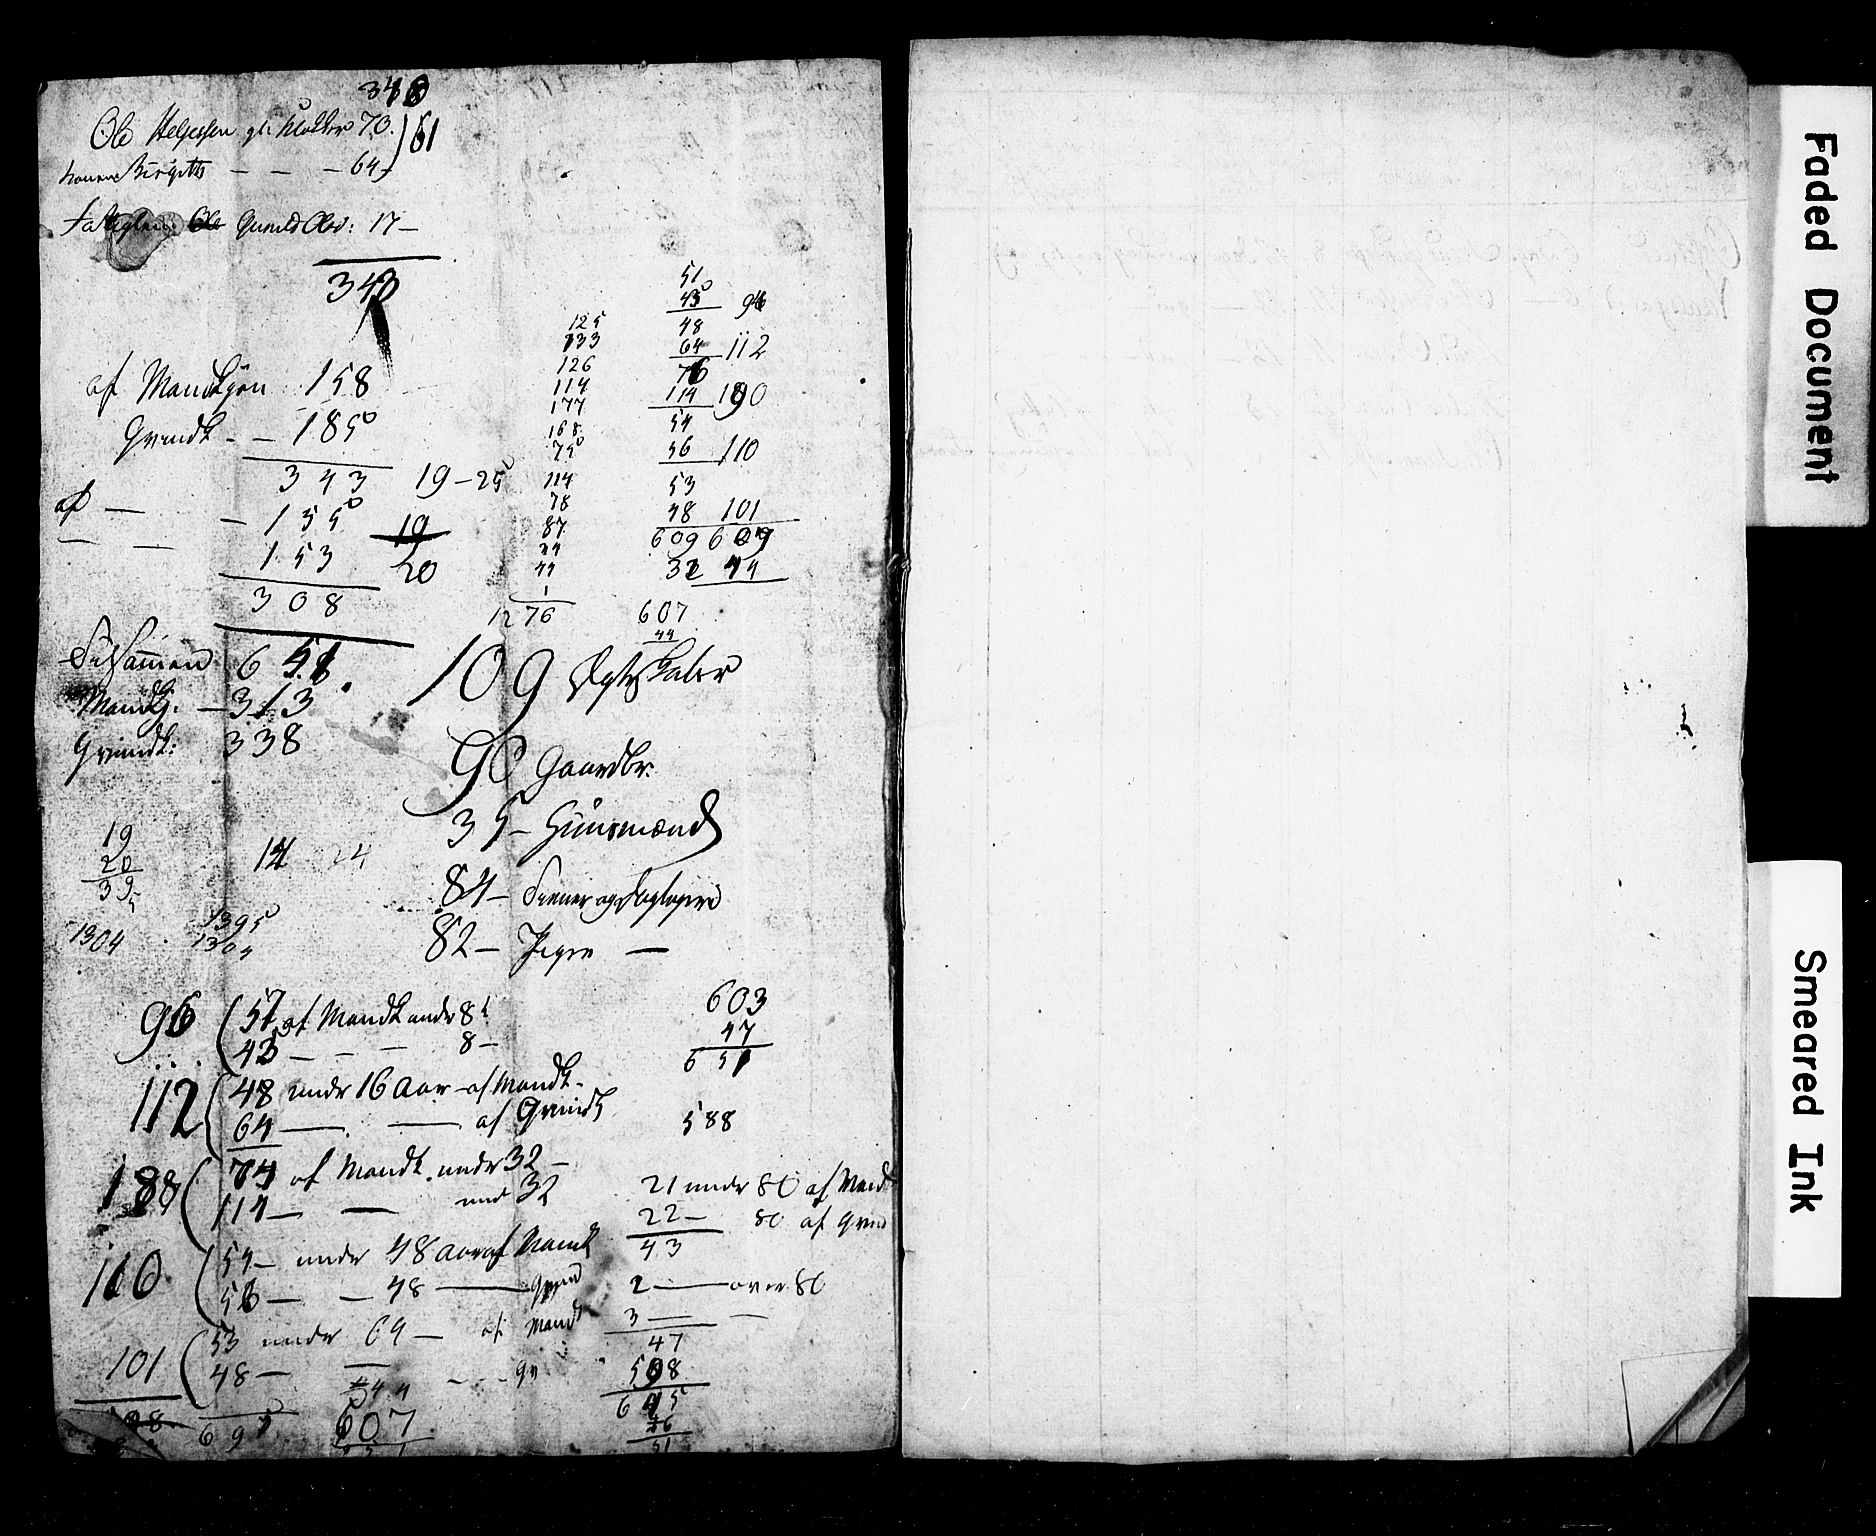 343
Ole Helgesen gl: Klokker 70. } 61
konen Birgitte — — — 64
Fattiglem: Ole Gunild Olsd: 17 —
343
af Mandkjön 158
Qvindk — — 185
343 19 — 25
af — — 155 19
— — 153 20
308
Tilsammen 651
Mandkj. — 313
Qvindk: 338
19
20
39
14 24
1304 1395
1304
125
133
126
114
177
168
75
114
78
87
34
44
1
1276
51
45 96
48
64 112
76
114 190
54
56 110
53
48 101
609 609
32 44
607
44
109 Ægteskaber
90 Gaardbr:
35 — Huusmænd
84 — Tiener og Daglejere
82 — Piger —
96 ( 51 af Mandk under 8
45 — — — 8 —
112 ( 48 under 16 Aar — af Mandk.
64 — — af Qvindk
188 ( 74 af Mandk. under 32 —
114 — — und 32
110 ( 54 — under 48 Aar af Mandk
56 — — 48 — Qvind
101 ( 53 under 64 — af Mandk
48 — — — — Qv
607
603
47
651
588
21 under 80 af Mand
22 — 80 af Qvind
43
2 — over 80
3 — —
47
598
645
6
51
Faded Document
Smeared Ink